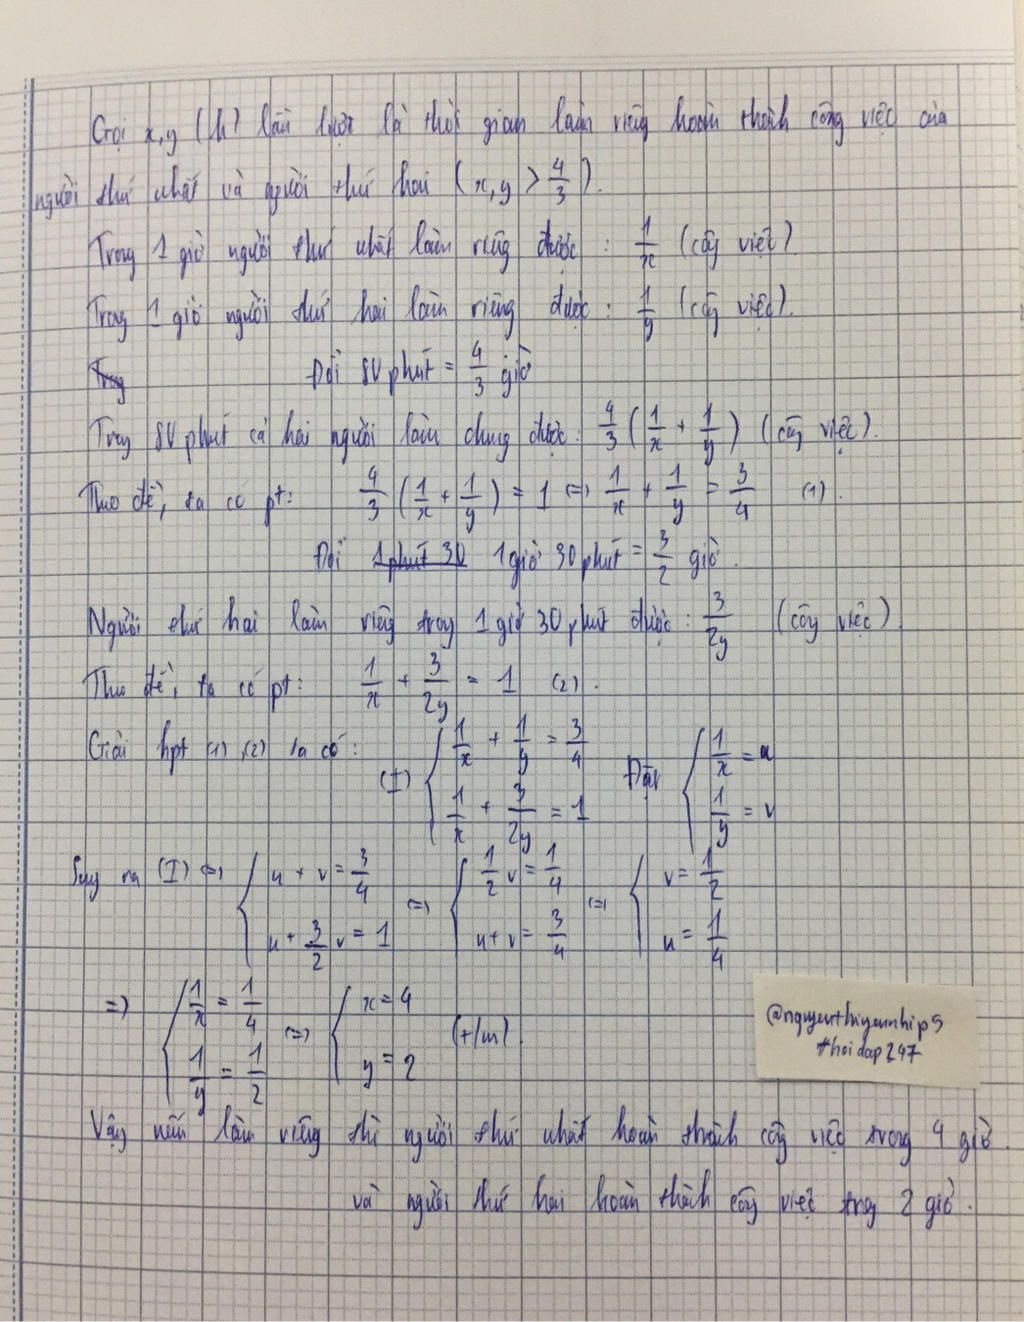 Gọi x,y (h) lần lượt là thời gian làm riêng hoàn thành công việc của
người thứ nhất và người thứ hai (x,y > 4/3).
Trong 1 giờ người thứ nhất làm riêng được : 1/x (công việc)
Trong 1 giờ người thứ hai làm riêng được : 1/y (công việc).
Trong Đổi 80 phút = 4/3 giờ
Trong 80 phút cả hai người làm chung được: 4/3 (1/x + 1/y) (công việc).
Theo đề, ta có pt: 4/3 (1/x + 1/y) = 1 <=> 1/x + 1/y = 3/4 (1).
Đổi 1 phút 30 1 giờ 30 phút = 3/2 giờ.
Người thứ hai làm riêng trong 1 giờ 30 phút được : 3/2y (công việc)
Theo đề, ta có pt: 1/x + 3/2y = 1 (2).
Giải hpt (1), (2) ta có: (I) { 1/x + 1/y = 3/4 Đặt { 1/x = u
1/x + 3/2y = 1 1/y = v
Suy ra (I) <=> { u + v = 3/4 <=> { 1/2 v = 1/4 <=> { v = 1/2
u + 3/2 v = 1 u + v = 3/4 u = 1/4
=> { 1/x = 1/4 <=> { x = 4 (t/m)
1/y = 1/2 y = 2
@nguyenthiyennhip5
#hoidap247
Vậy nếu làm riêng thì người thứ nhất hoàn thành công việc trong 4 giờ.
và người thứ hai hoàn thành công việc trong 2 giờ.